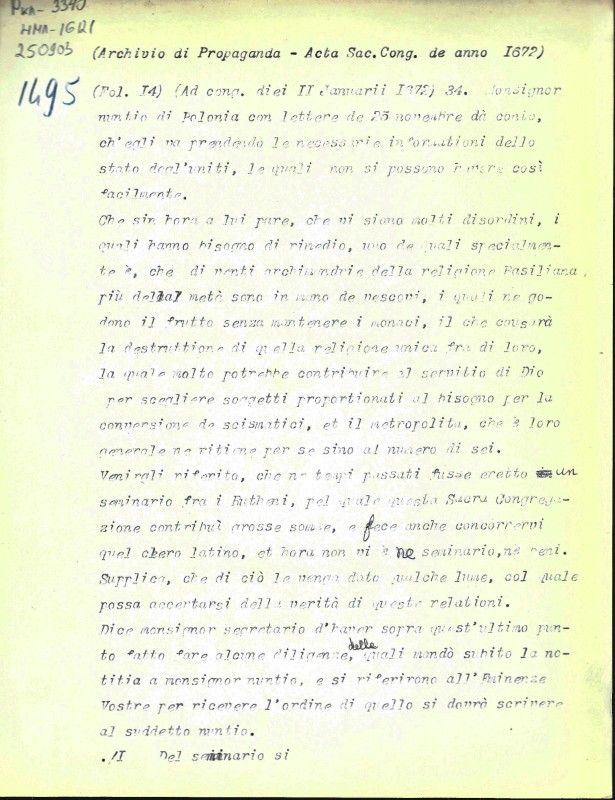 РКЛ- 3340
НМЛ-1621
250903
1495
(Archivio di Propaganda - Acta Sac.Cong. de anno I672)
(Fol. I4) (Ad cong. diei II Januarii I672) 34. Monsignor
nuntio di Polonia con lettere de 25 novembre dà conto,
ch'egli va prendendo le necessarie informationi dello
stato degl'uniti, le quali non si possono havere così
facilmente.
Che sin hora a lui pare, che vi siano molti disordini, i
quali hanno bisogno di rimedio, uno de quali specialmen-
te è, che di venti archimandrie della religione Basiliana,
più della metà sono in mano de vescovi, i quali ne go-
dono il frutto senza mantenere i monaci, il che causarà
la destruttione di quella religione unica fra di loro,
la quale molto potrebbe contribuire al servitio di Dio
per scegliere soggetti proportionati al bisogno per la
conversione de scismatici, et il metropolita, che è loro
generale ne ritiene per se sino al numero di sei.
Venirgli riferito, che ne tempi passati fusse eretto un
seminario fra i Rutheni, pel quale questa Sacra Congrega-
zione contribuì grosse somme, e fece anche concorrervi
quel clero latino, et hora non vi è ne seminario, nè beni.
Supplica, che di ciò le venga dato qualche lume, col quale
possa accertarsi della verità di queste relationi.
Dice monsignor segretario d'haver sopra quest'ultimo pun-
to fatto fare alcune diligenze, delle quali mandò subito la no-
titia a monsignor nuntio, e si riferirono all'Eminenze
Vostre per ricevere l'ordine di quello si dovrà scrivere
al suddetto nuntio.
./I Del seminario si